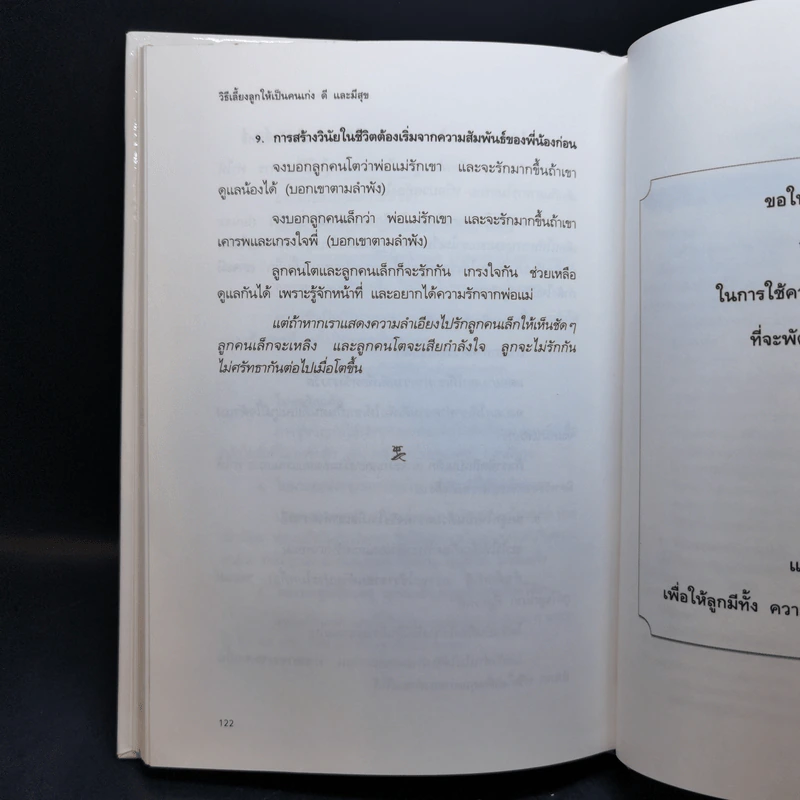 วิธีเลี้ยงลูกให้เป็นคนเก่ง ดี และมีสุข
9. การสร้างวินัยในชีวิตต้องเริ่มจากความสัมพันธ์ของพี่น้องก่อน
จงบอกลูกคนโตว่าพ่อแม่รักเขา และจะรักมากขึ้นถ้าเขา
ดูแลน้องได้ (บอกเขาตามลำพัง)
จงบอกลูกคนเล็กว่า พ่อแม่รักเขา และจะรักมากขึ้นถ้าเขา
เคารพและเกรงใจพี่ (บอกเขาตามลำพัง)
ลูกคนโตและลูกคนเล็กก็จะรักกัน เกรงใจกัน ช่วยเหลือ
ดูแลกันได้ เพราะรู้จักหน้าที่ และอยากได้ความรักจากพ่อแม่
แต่ถ้าหากเราแสดงความลำเอียงไปรักลูกคนเล็กให้เห็นชัดๆ
ลูกคนเล็กจะเหลิง และลูกคนโตจะเสียกำลังใจ ลูกจะไม่รักกัน
ไม่ศรัทธากันต่อไปเมื่อโตขึ้น
122
ขอให
ในการใช้คว
ที่จะพัต
แ
เพื่อให้ลูกมีทั้ง ควา